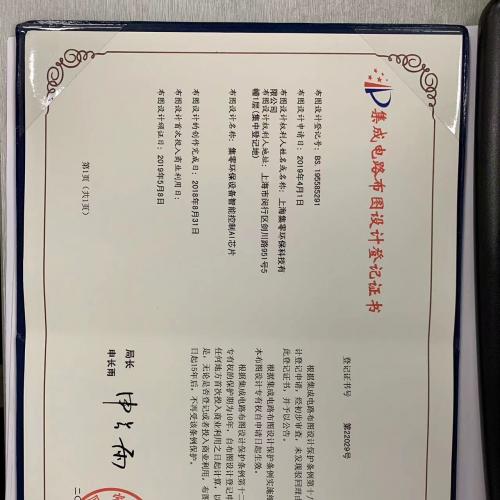 集成电路布图设计登记证书
证书号 第22029号
布图设计登记号：BS. 195585291
布图设计申请日：2019年4月1日
布图设计权利人姓名或名称：上海集零环保科技有
限公司
布图设计权利人地址：上海市闵行区剑川路951号5
幢1层(集中登记地)
布图设计名称：集零环保设备智能控制AI芯片
布图设计的创作完成日：2018年8月31日
布图设计首次投入商业利用日：
布图设计颁证日：2019年5月8日
第1页（共1页）
根据集成电路布图设计保护条例第十八
计登记申请，经初步审查，未发现驳回理由
此登记证书，并予以公告。
根据集成电路布图设计保护条例实施细
本布图设计专有权自申请日起生效。
根据集成电路布图设计保护条例第十二
专有权的保护期为10年，自布图设计登记申
任何地方首次投入商业利用之日起计算，以
是，无论是否登记或者投入商业利用，布图
日起15年后，不再受该条例保护。
局长
申长雨